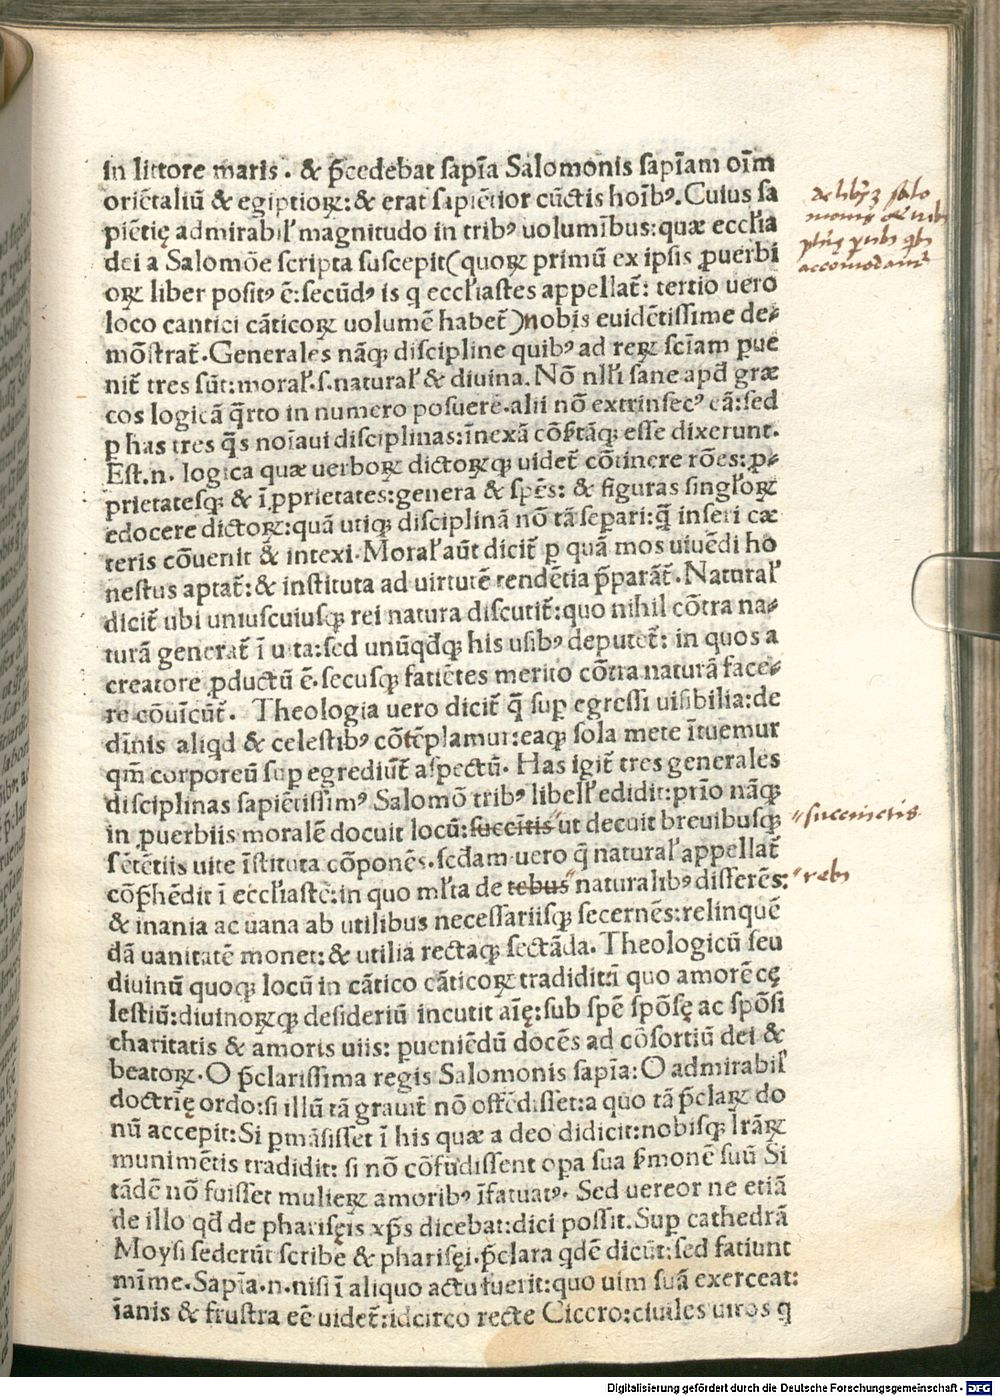 in littore maris . & p̄cedebat sapīa Salomonis sapīam oīm
oriētaliū & egiptioꝝ: & erat sapiētior cūctis hoībꝰ. Cuius sa
piētię admirabil' magnitudo in tribꝰ uolumībus: quæ eccl'ia
dei a Salomōe scripta suscepit (quoꝝ primū ex ipsis ꝓuerbi
oꝝ liber positꝰ ē: secūdꝰ is q eccl'iastes appellat̄: tertio uero
loco cantici cāticoꝝ uolumē habet̄) nobis euidētissime de⸗
mōstrat̄. Generales nāq; discipline quibꝰ ad reꝝ scīam ꝑue
nit̄ tres sūt: moral'.s. natural' & diuina. Nō nl'li sane apđ græ
cos logicā q̄rto in numero posuere. alii nō extrinsecꝰ eā: sed
ꝑ has tres q̄s noīaui disciplinas: īnexā cōp̄tāq; esse dixerunt.
Est.n. logica quæ uerboꝝ dictoꝝq; uidet̄ cōtinere rōes: ꝓ⸗
prietatesq; & īꝓprietates: genera & spēs: & figuras singl'oꝝ
edocere dictoꝝ: quā utiq; disciplinā nō tā separi: q̄ inseri cæ
teris cōuenit & intexi. Moral' aūt dicit̄ ꝑ quā mos uiuēdi ho
nestus aptat̄: & instituta ad uirtutē tendētia p̄parāt̄. Natural'
dicit̄ ubi uniuscuiusq; rei natura discutit̄: quo nihil cōtra na⸗
turā generat̄ ī uita: sed unūqđq; his usibꝰ deputet̄: in quos a
creatore ꝓductū ē. secusq; fatiētes merito cōtra naturā face⸗
re cōuīcūt̄. Theologia uero dicit̄ q̄ suꝑ egressi uisibilia: de
dīnis aliqd & celestibꝰ cōtēplamur: eaq; sola mete ītuemur
qm̄ corporeū suꝑ egrediūt̄ aspectū. Has igit̄ tres generales
disciplinas sapiētissimꝰ Salomō tribꝰ libell' edidit: prīo nāq;
in ꝓuerbiis moralē docuit locū: succītis ut decuit breuibusq;
sētētiis uite īstituta cōponēs. secđam uero q̄ natural' appellat̄
cōp̄hēdit ī eccl'iastē: in quo ml'ta de rebus naturalibꝰ differēs:
& inania ac uana ab utilibus necessariisq; secernēs: relinquē
dā uanitatē monet: & utilia rectaq; sectāda. Theologicū seu
diuinū quoq; locū in cātico cāticoꝝ tradidit: ī quo amorē cę
lestiū: diuinoꝝq; desideriū incutit aīę: sub spē spōsę ac spōsi
charitatis & amoris uiis: ꝑueniēdū docēs ad cōsortiū dei &
beatoꝝ. O p̄clarissima regis Salomonis sapīa: O admirabil'
doctrię ordo: si illū tā grauit̄ nō offēdisset: a quo tā p̄claꝝ do
nū accepit: Si ꝑmāsisset ī his quæ a deo didicit: nobisq; lr̄aꝝ
munimētis tradidit: si nō cōfudissent opa sua s̄monē suū Si
tādē nō fuisset mulieꝝ amoribꝰ īfatuatꝰ. Sed uereor ne etiā
de illo qđ de pharisęis xp̄s dicebat: dici possit. Suꝑ cathedrā
Moysi sederūt scribe & pharisęi. p̄clara qdē dicūt: sed fatiunt
mīme. Sapīa.n. nisi ī aliquo actu fuerit: quo uim suā exerceat:
īanis & frustra eē uidet̄: idcirco recte Cicero: ciuiles uiros q
de libris Salo
monis
accomodant
succinctis
rebꝰ
Digitalisierung gefördert durch die Deutsche Forschungsgemeinschaft - DFG